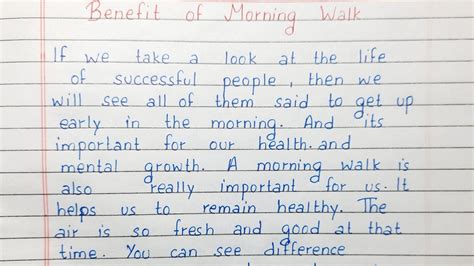 Benefit of Morning Walk
If we take a look at the life
of successful people, then we
will see all of them said to get up
early in the morning. And its
important for our health. and
mental growth. A morning walk is
also really important for us. It
helps us to remain healthy. The
air is so fresh and good at that
time. You can see difference